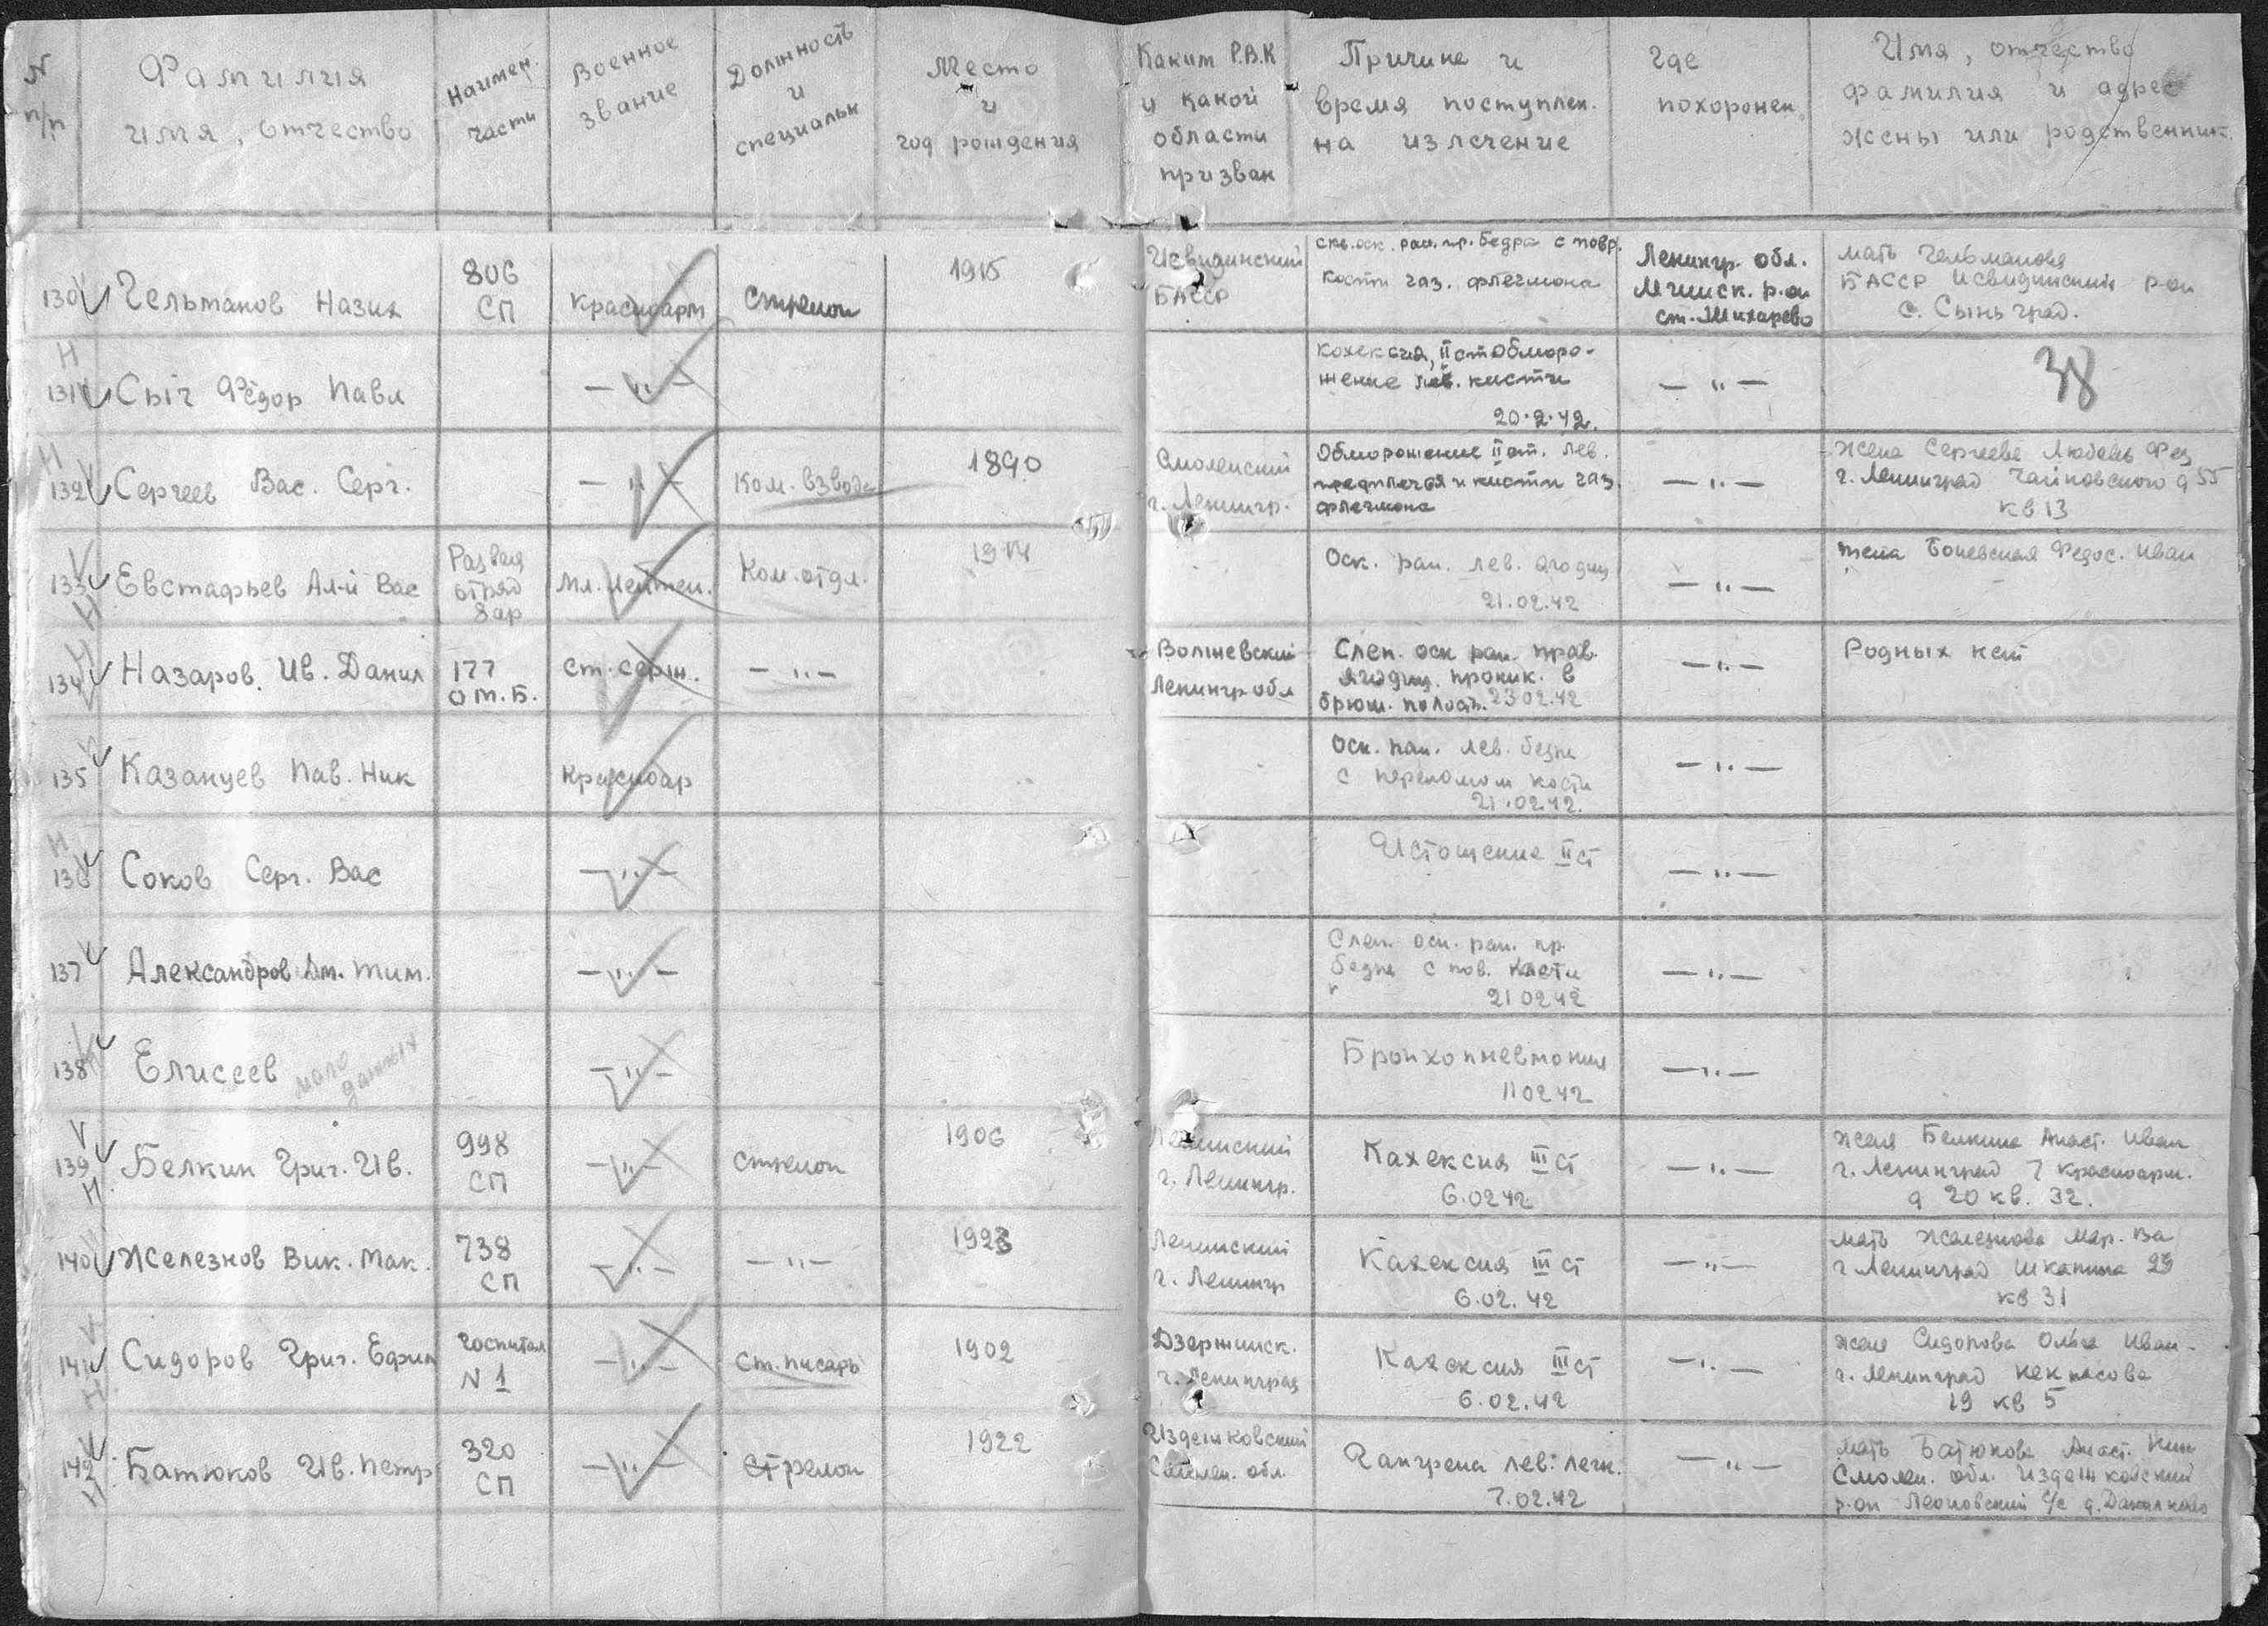 N п/п
Фамилия имя, отчество
Наимен. части
Военное звание
Должность и специальн
Место и год рождения
Каким Р.В.К и какой области призван
Причина и время поступлен. на излечение
Где похоронен.
Имя, отчество фамилия и адрес жены или родственник.
130 Гельманов Назих 806 СП Красноарм Стрелок 1915
БАССР
скв. оск. ран. пр. бедра с повр. кости газ. флегмона
Ленингр. обл. Мгинск. р-он
мать Гельманова БАССР
р-он с.
38
131 Сыч Фёдор Павл — " —
Кохексия, II ст обморожение лев. кисти 20.2.42.
— " —
132 Сергеев Вас. Серг. — " — Ком. взвода 1890
Смоленский г. Ленингр.
Обморожение II ст. лев. предплечья и кисти газ. флегмона
— " —
жена Сергеева Любовь Фед г. Ленинград Чайковского д 55 кв 13
133 Евстафьев Ал-й Вас Развед отряд 8ар Мл. лейтен. Ком. отдл.
Оск. ран. лев. ягодиц 21.02.42
— " —
жена Федос. Иван
134 Назаров Ив. Данил 177 о т. Б. ст. серж. — " —
Ленингр обл
Слеп. оск ран. прав. ягодиц. проник. в брюш. полост. 23 02.42
— " —
Родных нет
135 Казанцев Пав. Ник Красноар
Оск. ран. лев. бедра с переломом кости 21.02.42.
— " —
136 Соков Серг. Вас — " —
Истощение II ст
— " —
137 Александров Дм. Тим. — " —
Слеп. оск. ран. пр. бедра с пов. кости 21 02 42
— " —
138 Елисеев мало данных — " —
Бронхопневмония 11 02 42
— " —
139 Белкин Григ. Ив. 998 СП — " — стрелок 1906
Ленинский г. Ленингр.
Кахексия III ст 6.02 42
— " —
жена Белкина Анаст. Иван г. Ленинград 7 красноарм. д 20 кв. 32.
140 Железнов Вик. Мак. 738 СП — " — — " — 1923
Ленинский г. Ленингр
Кахексия III ст 6.02. 42
— " —
мать Железнова Мар. Ва г Ленинград Шкапина 29 кв 31
141 Сидоров Григ. Ефим госпиталь N 1 — " — Ст. писарь 1902
Дзержинск. г. Ленинград
Кахексия III ст 6.02.42
— " —
жена Сидорова Ольга Иван. г. Ленинград Некрасова 19 кв 5
142 Батюков Ив. Петр 320 СП — " — Стрелок 1922
Издешковский Смолен. обл.
Гангрена лев. легк. 7.02.42
— " —
мать Батюкова Анаст. Смолен. обл. Издешковский р-он с/с д.